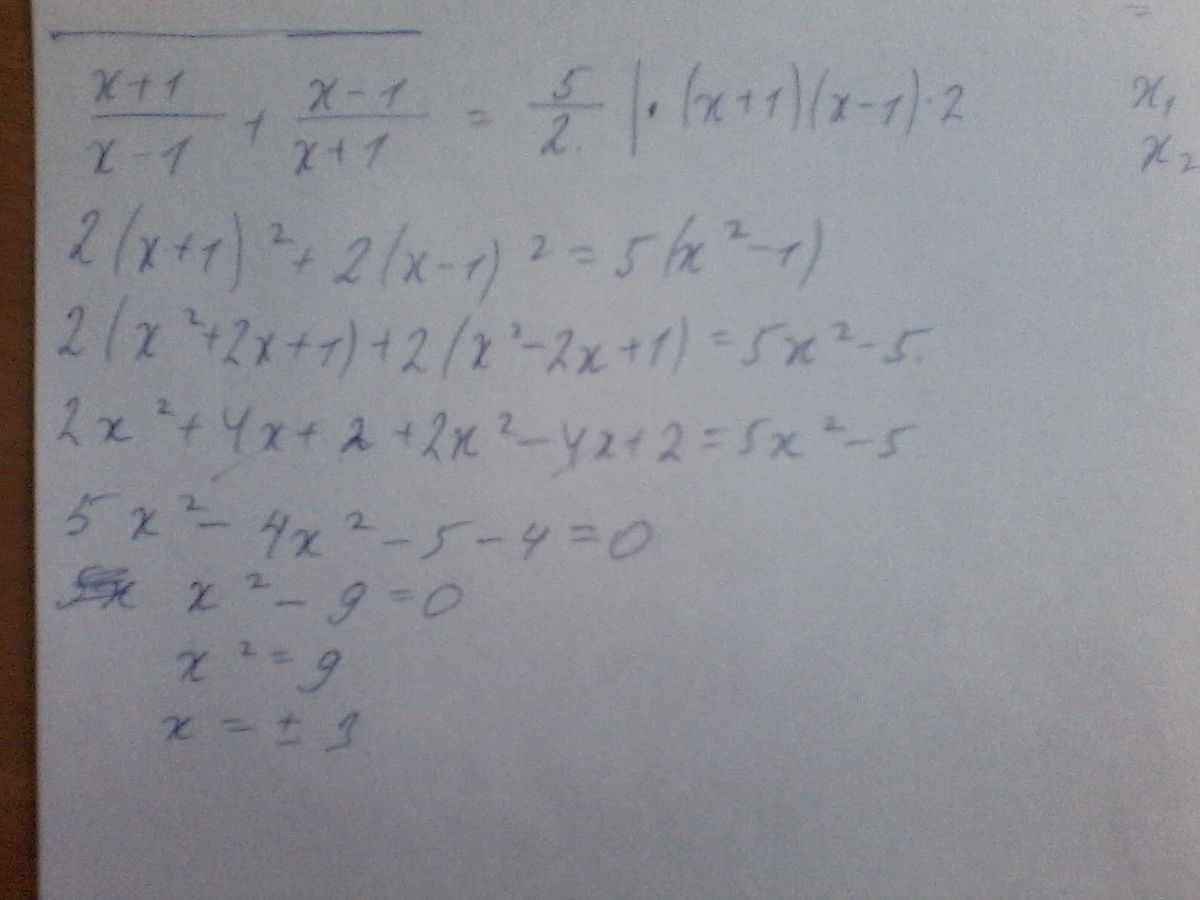 (x+1)/(x-1) + (x-1)/(x+1) = 5/2 | · (x+1)(x-1)·2
x₁
x₂
2(x+1)² + 2(x-1)² = 5(x²-1)
2(x²+2x+1)+2(x²-2x+1) = 5x²-5
2x²+4x+2+2x²-4x+2=5x²-5
5x²-4x²-5-4=0
x²-9=0
x²=9
x=±3